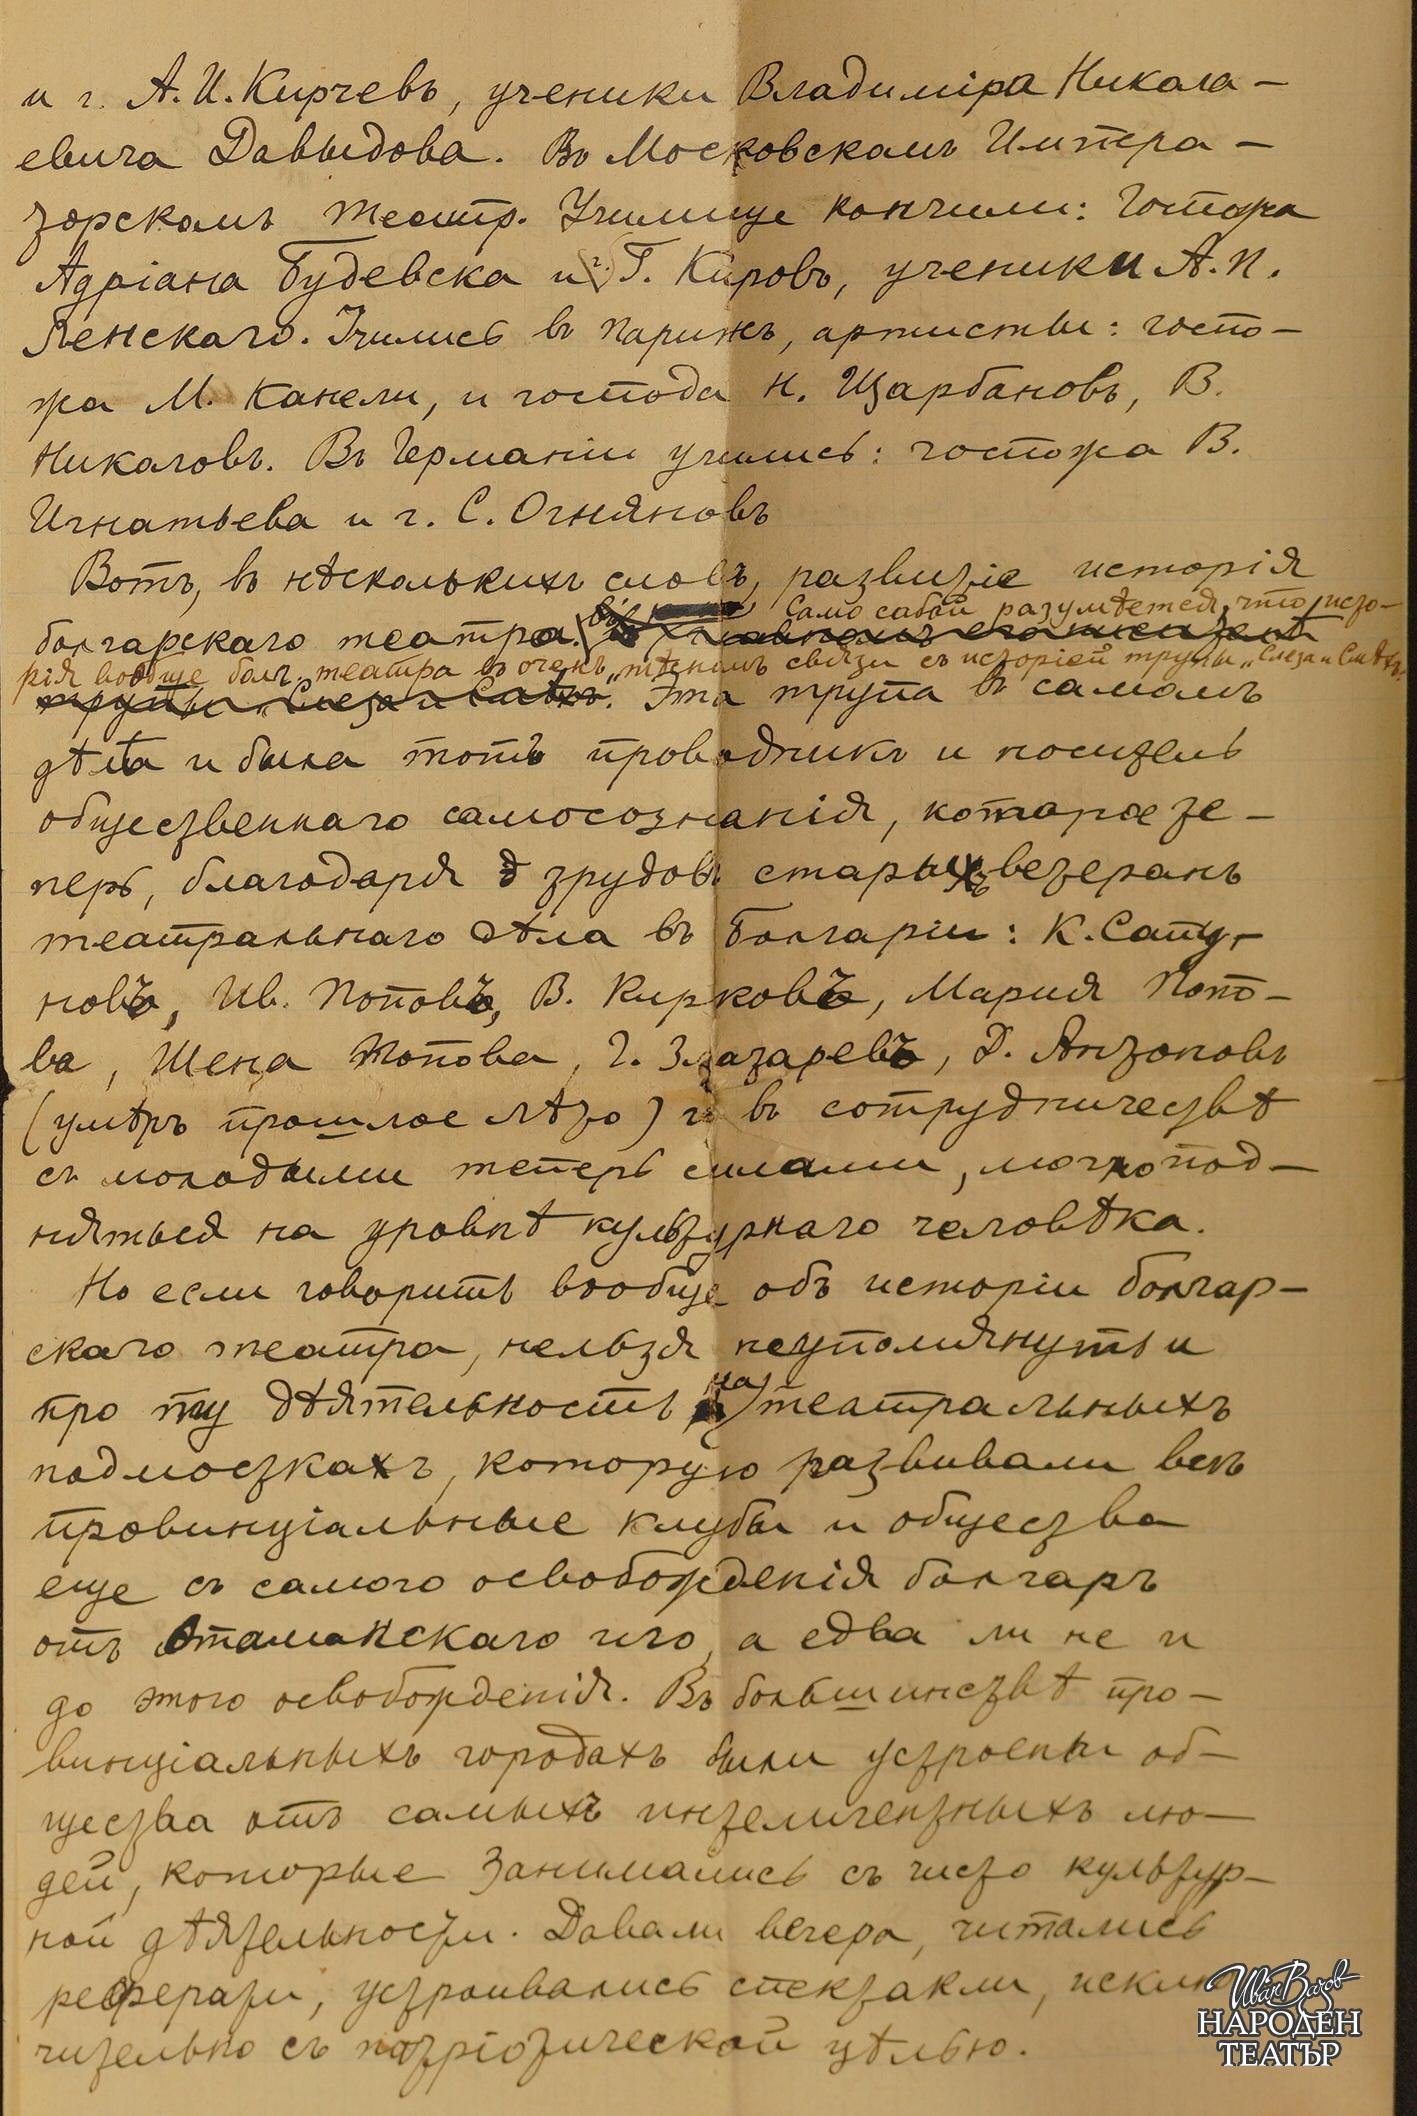 и г. А. И. Кирчевъ, ученики Владиміра Никола-
евича Давыдова. Въ Московскомъ Импера-
торскомъ театр. Училище кончили: Госпожа
Адріана Будевска и г. Г. Кировъ, ученики А. П.
Ленскаго. Учились въ Парижъ, артисты: госпо-
жа М. Канели, и господа Н. Щарбановъ, В.
Николовъ. Въ Германіи учились: госпожа В.
Игнатьева и г. С. Огняновъ
Вотъ, въ нѣсколькихъ словъ, развитіе исторія
Само собой разумѣется, что исто-
болгарскаго театра. въ главномъ его
рія вообще болг. театра въ очень „тѣсномъ связи съ исторіей трупы „Слеза и Смѣхъ".
трупы „Слеза и Смѣхъ". Эта трупа въ самомъ
дѣла и была тотъ проводникъ и носитель
общественнаго самосознанія, которое те-
перь, благодаря трудовъ старыхъ ветеранъ
театральнаго дѣла въ Болгаріи: К. Сапу-
новъ, Ив. Поповъ, В. Кирковъ, Мария Попо-
ва, Шена Попова, Г. Златаревъ, Д. Антоновъ
(умѣръ прошлое лѣто) и въ сотрудничествѣ
съ молодыми теперь силами, могло под-
няться на уровнѣ культурнаго человѣка.
Но если говорить вообще объ исторіи болгар-
скаго театра, нельзя неупомянуть и
про ту дѣятельность на театральныхъ
подмосткахъ, которую развивали всѣ
провинціальные клубы и общества
еще съ самого освобожденія болгаръ
отъ Отоманскаго иго, а едва ли не и
до этого освобожденія. Въ большинствѣ про-
винціальныхъ городахъ были устроены об-
щества отъ самыхъ интелигентныхъ лю-
дей, которые занимались съ чисто культур-
ной дѣятельности. Давали вечера, читались
реферати, устроивались спектакли, исклю
чительно съ патріотической цѣлью.
Иван Вазов
НАРОДЕН
ТЕАТЪР